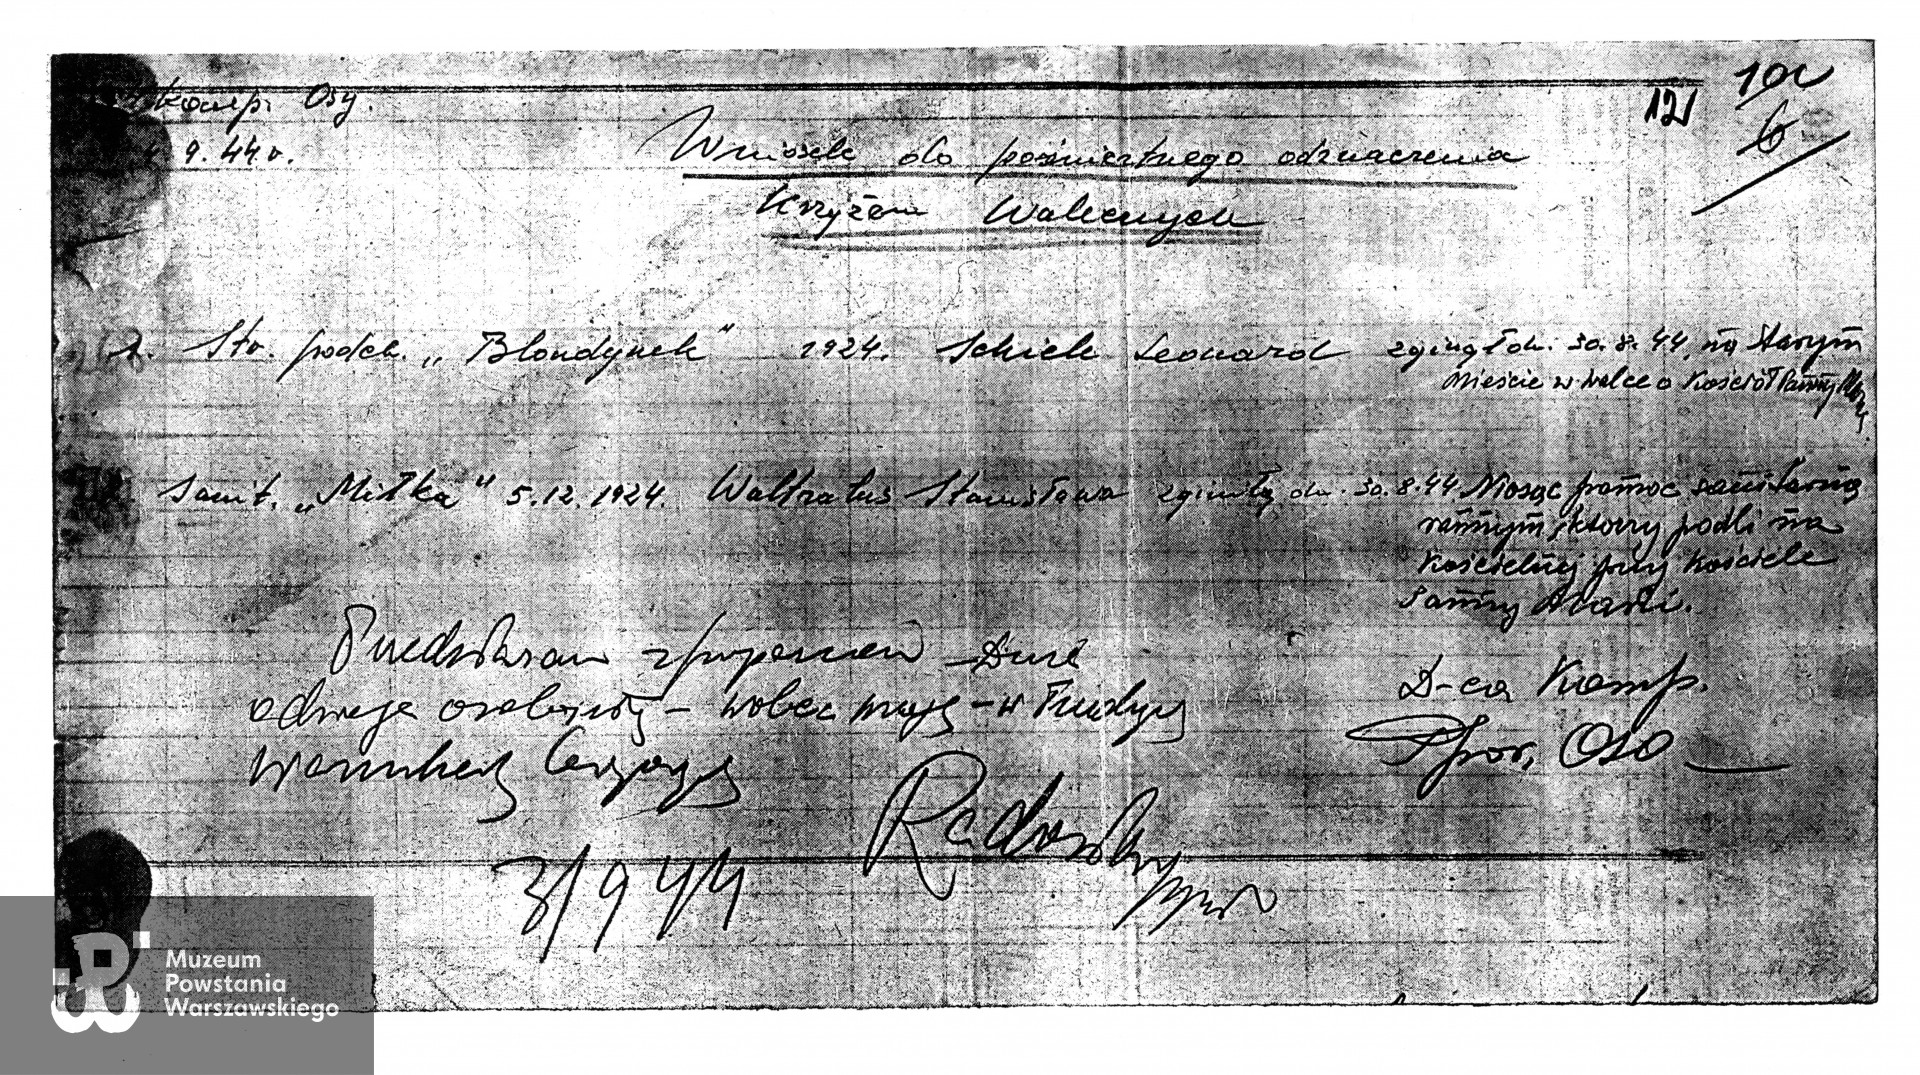 komp. Osy.
9.44 r.
121
101
6
Wniosek do pośmiertnego odznaczenia
Krzyżem Walecznych
1. Str. podch. „Blondynek” 1924. Schiele Leonard zginął dn. 30.8.44, na Starym
Mieście w walce o Kościół Panny Marii
Sanit. „Mitka” 5.12.1924. Waltratus Stanisława zginęła dn. 30.8.44 Niosąc pomoc sanitarną
rannym, którzy padli na
Kościelnej przy kościele
Panny Marii.
Przedstawiam z poparciem
odwagę osobistą – wobec – w
D-ca Komp.
Ppor. Osa
Radosław
3/9 44
Muzeum
Powstania
Warszawskiego